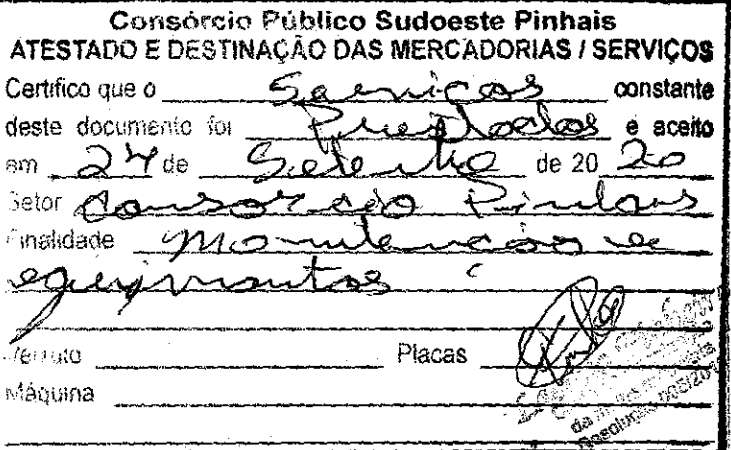 Consórcio Público Sudoeste Pinhais
ATESTADO E DESTINAÇÃO DAS MERCADORIAS / SERVIÇOS
Certifico que o Serviços constante
deste documento foi Prestados e aceito
em 24 de Setembro de 2020
Setor Consorcio Pinhais
Finalidade Manutenção de
equipamentos
Veículo Placas
Máquina
da
Resolução 005/201